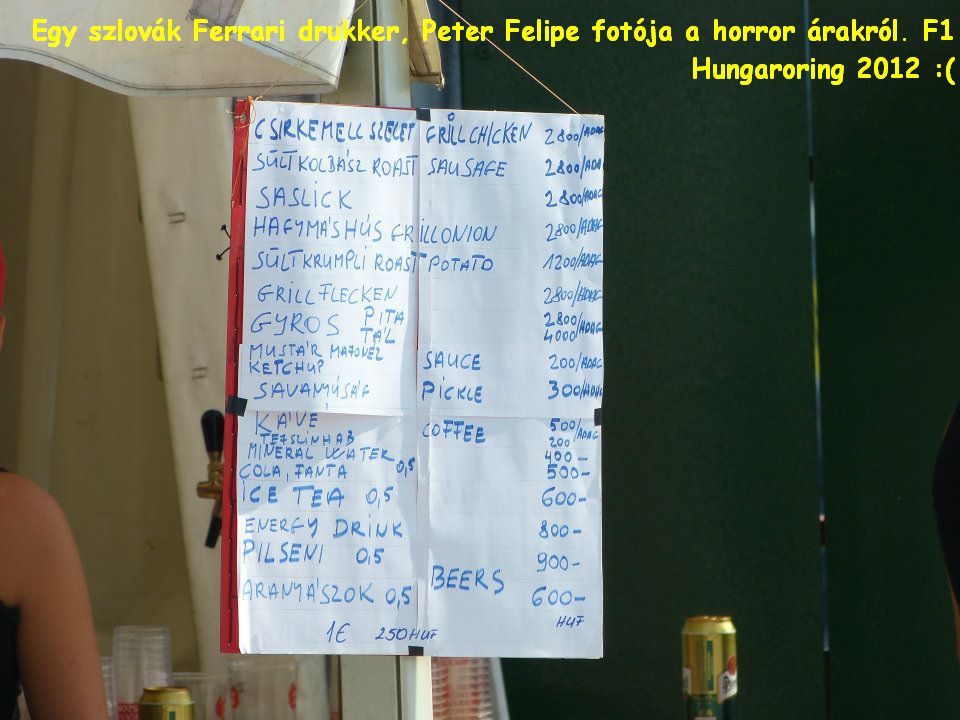 Egy szlovák Ferrari drukker, Peter Felipe fotója a horror árakról. F1
Hungaroring 2012 :(
CSIRKEMELL SZELET GRILL CHICKEN 2800/ADAG
SÜLT KOLBÁSZ ROAST SAUSAGE 2800/ADAG
SASLICK 2800/ADAG
HAGYMÁSHÚS GRILLONION 2800/ADAG
SÜLTKRUMPLI ROAST POTATO 1200/ADAG
GRILL FLECKEN 2800/ADAG
GYROS PITA 2800
TÁL 4000/ADAG
MUSTÁR MAJONÉZ
KETCHUP SAUCE 200/ADAG
SAVANYÚSÁG PICKLE 300/ADAG
KÁVÉ COFFEE 500/ADAG
TEJSZÍNHAB 200
MINERAL WATER 400-
COLA, FANTA 0,5 500-
ICE TEA 0,5 600-
ENERGY DRINK 800-
PILSENI 0,5 900-
BEERS
ARANYÁSZOK 0,5 600-
HUF
1€ 250 HUF